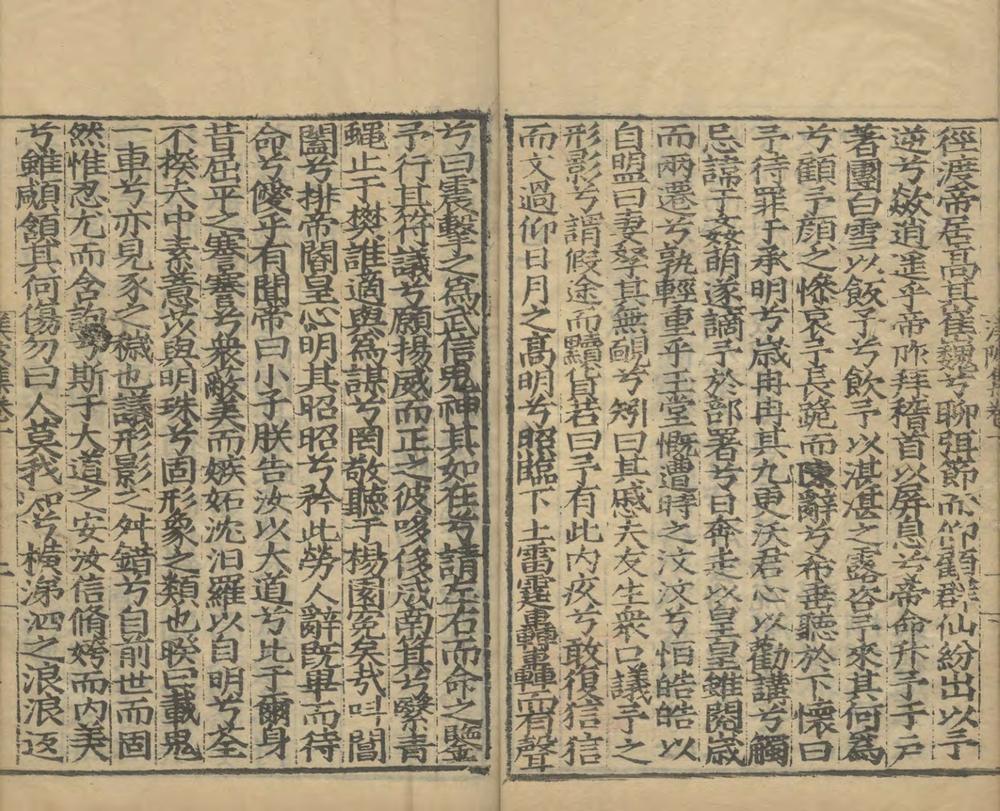 徑度帝居高其嵬巍兮聊弭節而仰觀群仙紛出以予
逆兮欻逍遥乎帝阼拜稽首以屏息兮帝命升予于戶
著團白雪以飲予兮飲予以湛湛之露咨予來其何爲
兮顧予顔之慘哀予長跪而陳辭兮希垂聽於下懷曰
予待罪于承明兮歲冉冉其九更沃君心以勸講兮觸
忌諱于姦萌遂謫予於部署兮曰奔走以皇皇雖閱歲
而兩遷兮孰輕重乎玉堂慨遭時之汶汶兮怕皓皓以
自盟曰妻孥其無覥兮矧曰其戚夫友生衆口議予之
形影兮謂假途而黷貨若曰予有此内疚兮敢復狺狺
而文過仰日月之高明兮昭臨下土雷霆轟轟而有聲
兮曰震擊之爲武信鬼神其如在兮請左右而命之鑒
予行其符議兮願揚威而正之彼哆侈成南箕兮繄青
蠅止于樊誰適與爲謀兮罔敬聽于楊園寃矣哉叫閶
闔兮排帝閽皇心明其昭昭兮矜此勞人辭旣畢而待
命兮僾乎有聞帝曰小子朕告汝以大道兮比于爾身
昔屈平之謇謇兮衆蔽美而嫉妬沈汨羅以自明兮荃
不揆夫中素薏苡與明珠兮固形象之類也睽曰載鬼
一車兮亦見豕之穢也議形影之舛錯兮自前世而固
然惟忍尤而含訽兮斯于大道之安汝信脩姱而内美
兮雖顑頷其何傷勿曰人莫我知兮橫涕泗之浪浪迓